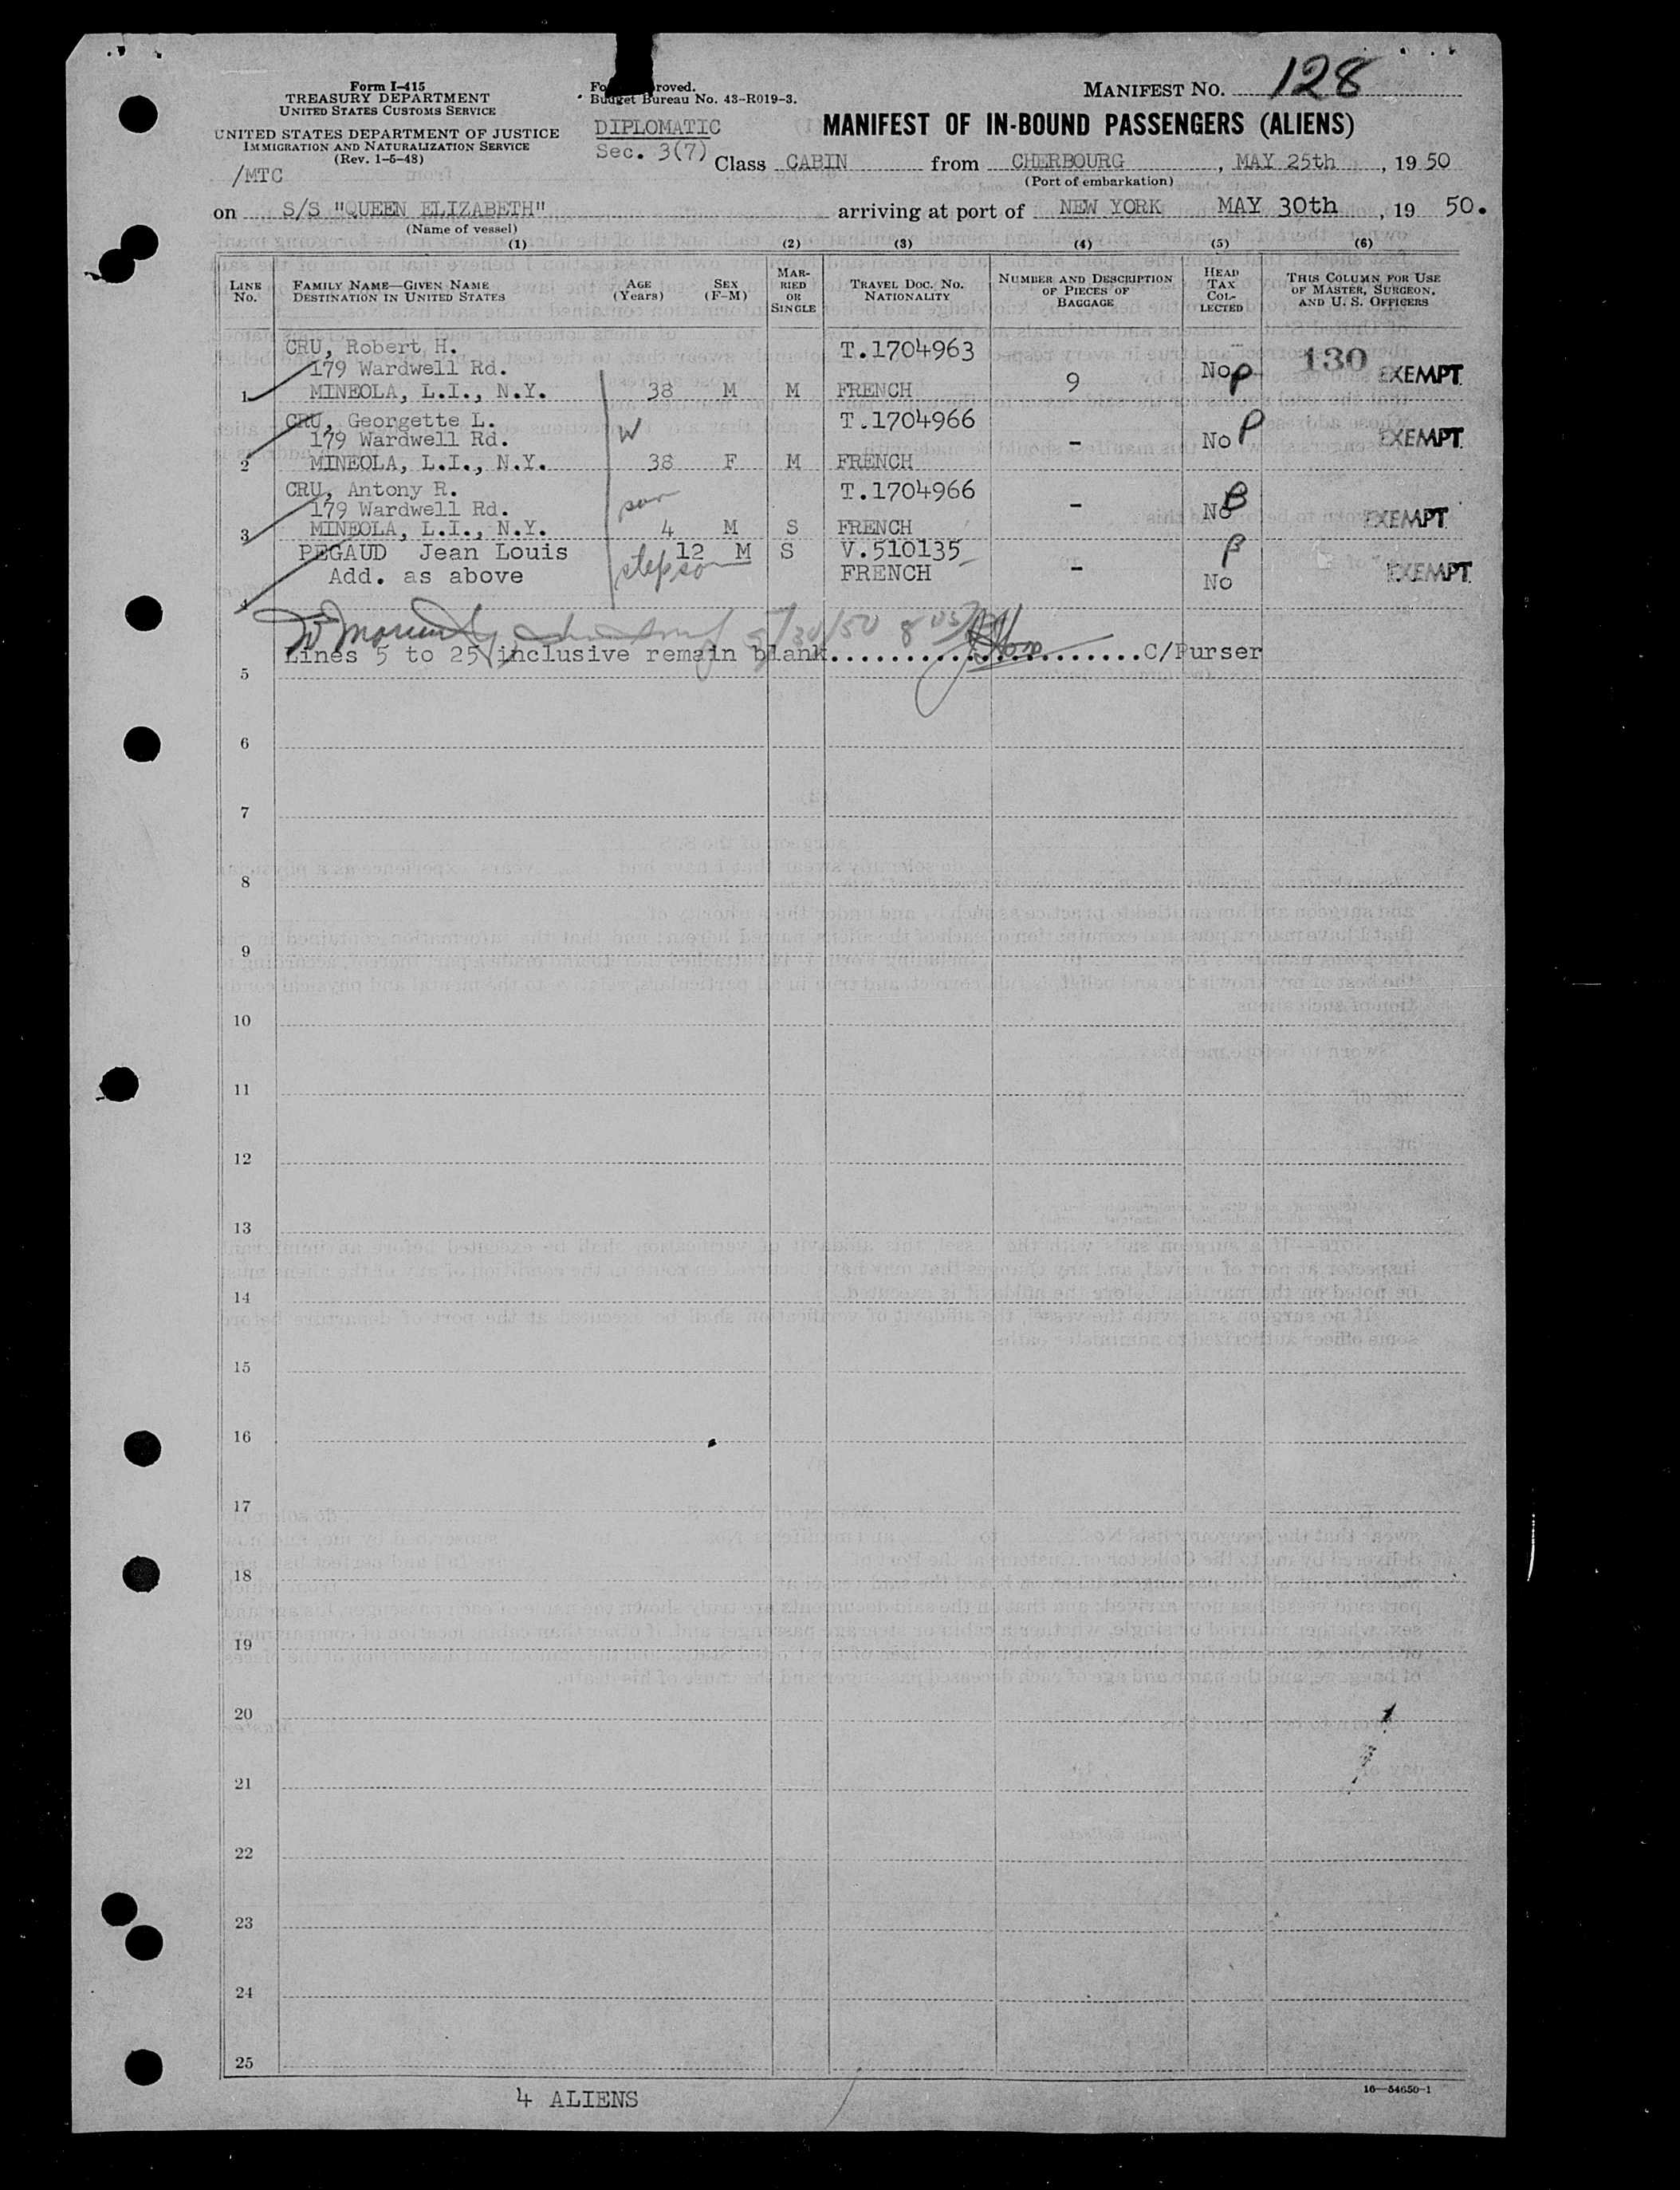 Form I-415
TREASURY DEPARTMENT
UNITED STATES CUSTOMS SERVICE
UNITED STATES DEPARTMENT OF JUSTICE
IMMIGRATION AND NATURALIZATION SERVICE
(Rev. 1-5-48)
/MTC
Budget Bureau No. 43-R019-3.
DIPLOMATIC
Sec. 3(7)
MANIFEST NO. 128
MANIFEST OF IN-BOUND PASSENGERS (ALIENS)
Class CABIN from CHERBOURG, MAY 25th, 1950
(Port of embarkation)
on S/S "QUEEN ELIZABETH" arriving at port of NEW YORK MAY 30th, 19 50.
(Name of vessel)
(1) (2) (3) (4) (5) (6)
LINE NO. FAMILY NAME—GIVEN NAME DESTINATION IN UNITED STATES AGE (Years) SEX (F-M) MARRIED OR SINGLE TRAVEL DOC. NO. NATIONALITY NUMBER AND DESCRIPTION OF PIECES OF BAGGAGE HEAD TAX COLLECTED THIS COLUMN FOR USE OF MASTER, SURGEON, AND U. S. OFFICERS
CRU, Robert H. T.1704963
179 Wardwell Rd. 9 No P 130 EXEMPT
1 MINEOLA, L.I., N.Y. 38 M M FRENCH
CRU, Georgette L. W T.1704966
179 Wardwell Rd. - No P EXEMPT
2 MINEOLA, L.I., N.Y. 38 F M FRENCH
CRU, Antony R. son T.1704966
179 Wardwell Rd. - No B EXEMPT
3 MINEOLA, L.I., N.Y. 4 M S FRENCH
PEGAUD Jean Louis 12 M S V.510135
Add. as above stepson FRENCH - No B EXEMPT
4
5/30/50 8 05
Lines 5 to 25 inclusive remain blank....................C/Purser
5
6
7
8
9
10
11
12
13
14
15
16
17
18
19
20
21
22
23
24
25
4 ALIENS
16—54650-1